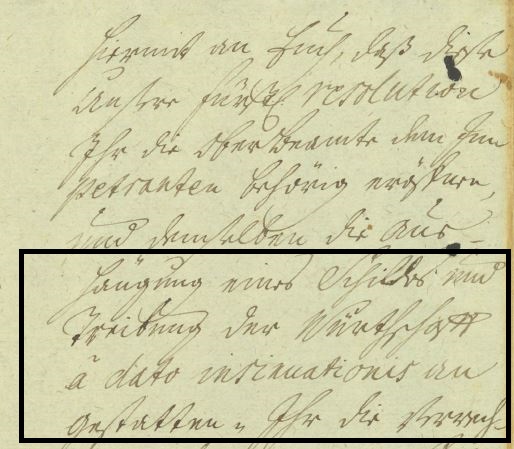 hiermit an Euch, daß diese
Unsere Fürstl. resolution
Ihr die Ober Beamte dem Im
petranten behörig eröffnen,
und demselben die Aus-
hängung eines Schildes und
Treibung der Würthschafft
à dato insinuationis an
gestatten, Ihr die Verrech-